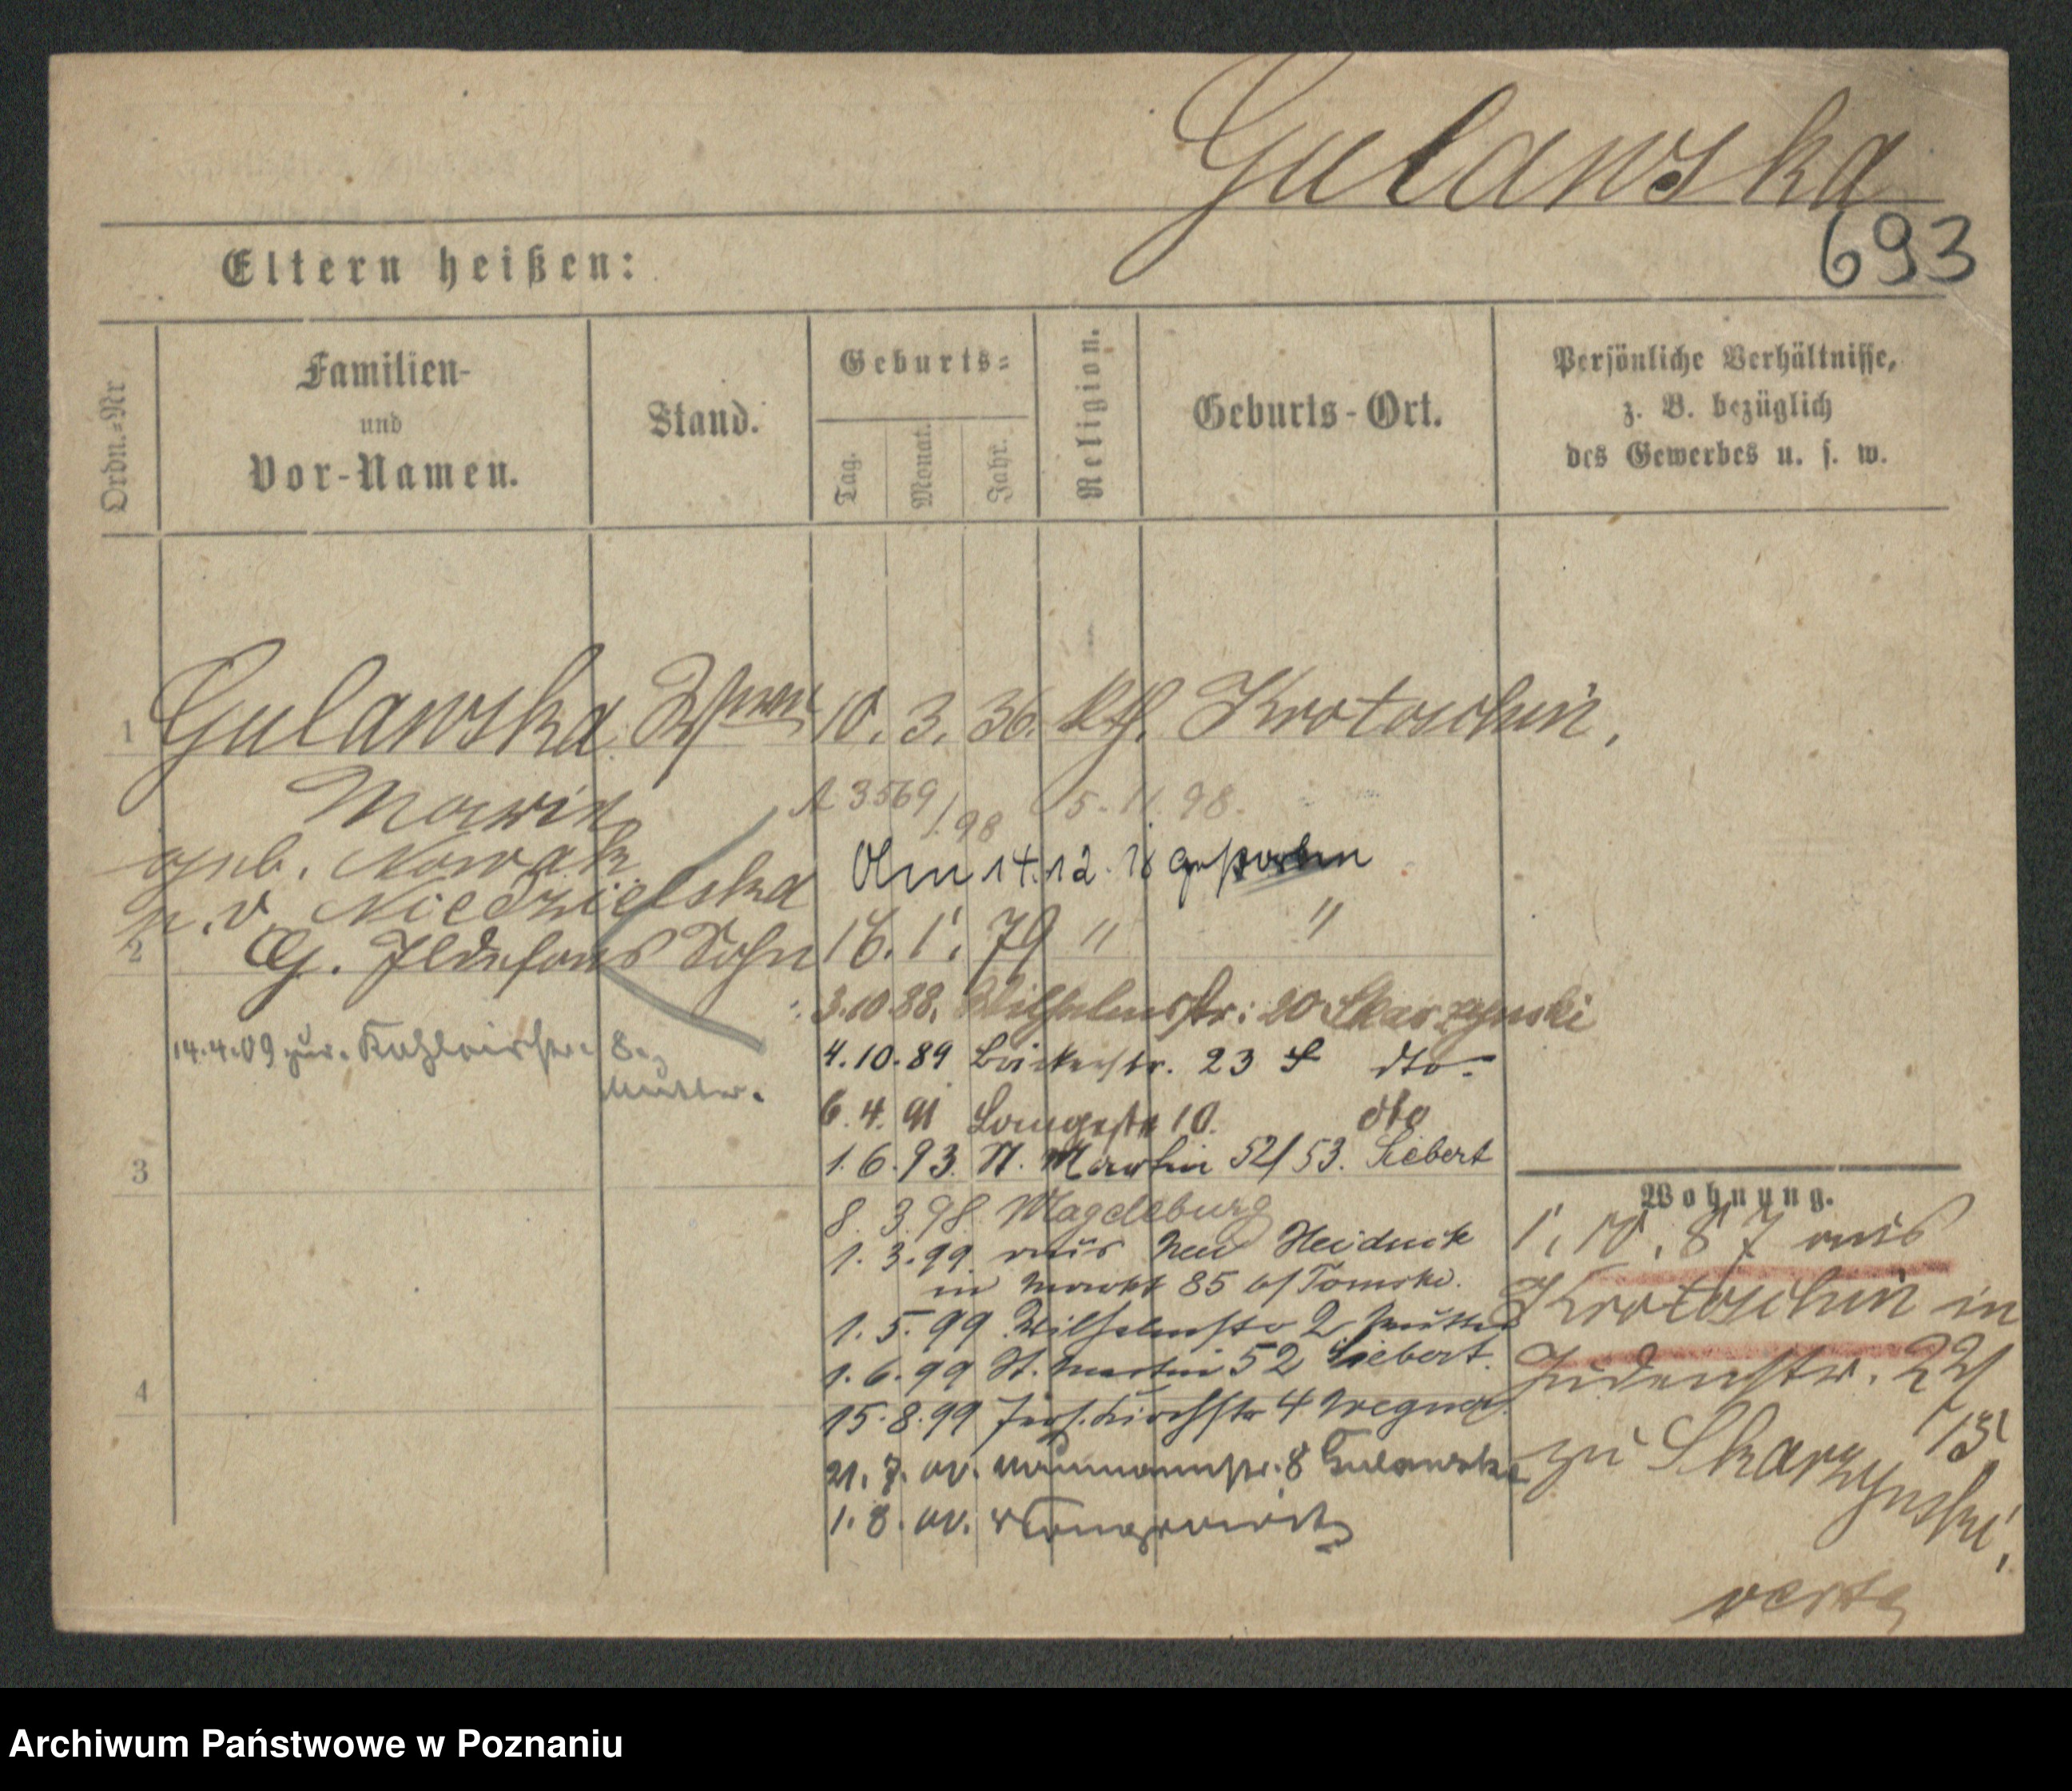 Gulawska
693
Eltern heißen:
Ordn.-Nr
Familien-
und
Vor-Namen.
Stand.
Geburts-
Tag.
Monat.
Jahr.
Religion.
Geburts-Ort.
Persönliche Verhältnisse,
z. B. bezüglich
des Gewerbes u. s. w.
1 Gulawska 10. 3. 36. Kth. Krotoschin.
Maria
A 3569/98 5. 11. 98.
geb. Nowak
Am 14.12. gestorben
v. Niedzielska
2 G. Ildefons Sohn 16. 1. 79 " "
3.10.88. Wilhelmstr: 20 Skarzynski
14.4.09 zur. 8.
Mutter.
4.10.89 Bäckerstr. 23 dto
6.4.91 Langestr 10. dto
3
1.6.93. St. Martin 52/53. Siebert
8. 3. 98. Magdeburg
1. 3. 99. aus Neu Heiduck
in Markt 85 b/Tomski.
1. 5. 99 Wilhelmstr 2 Mutter
1. 6. 99 St. Martin 52 Siebert.
4
15. 8. 99 Kirchstr 4 Wegner
21. 7. Naumannstr. 8 Gulawska
1. 8.
Wohnung.
1. 10. 87 aus
Krotoschin in
Judenstr. 22/
13/
zu Skarzynski,
verte